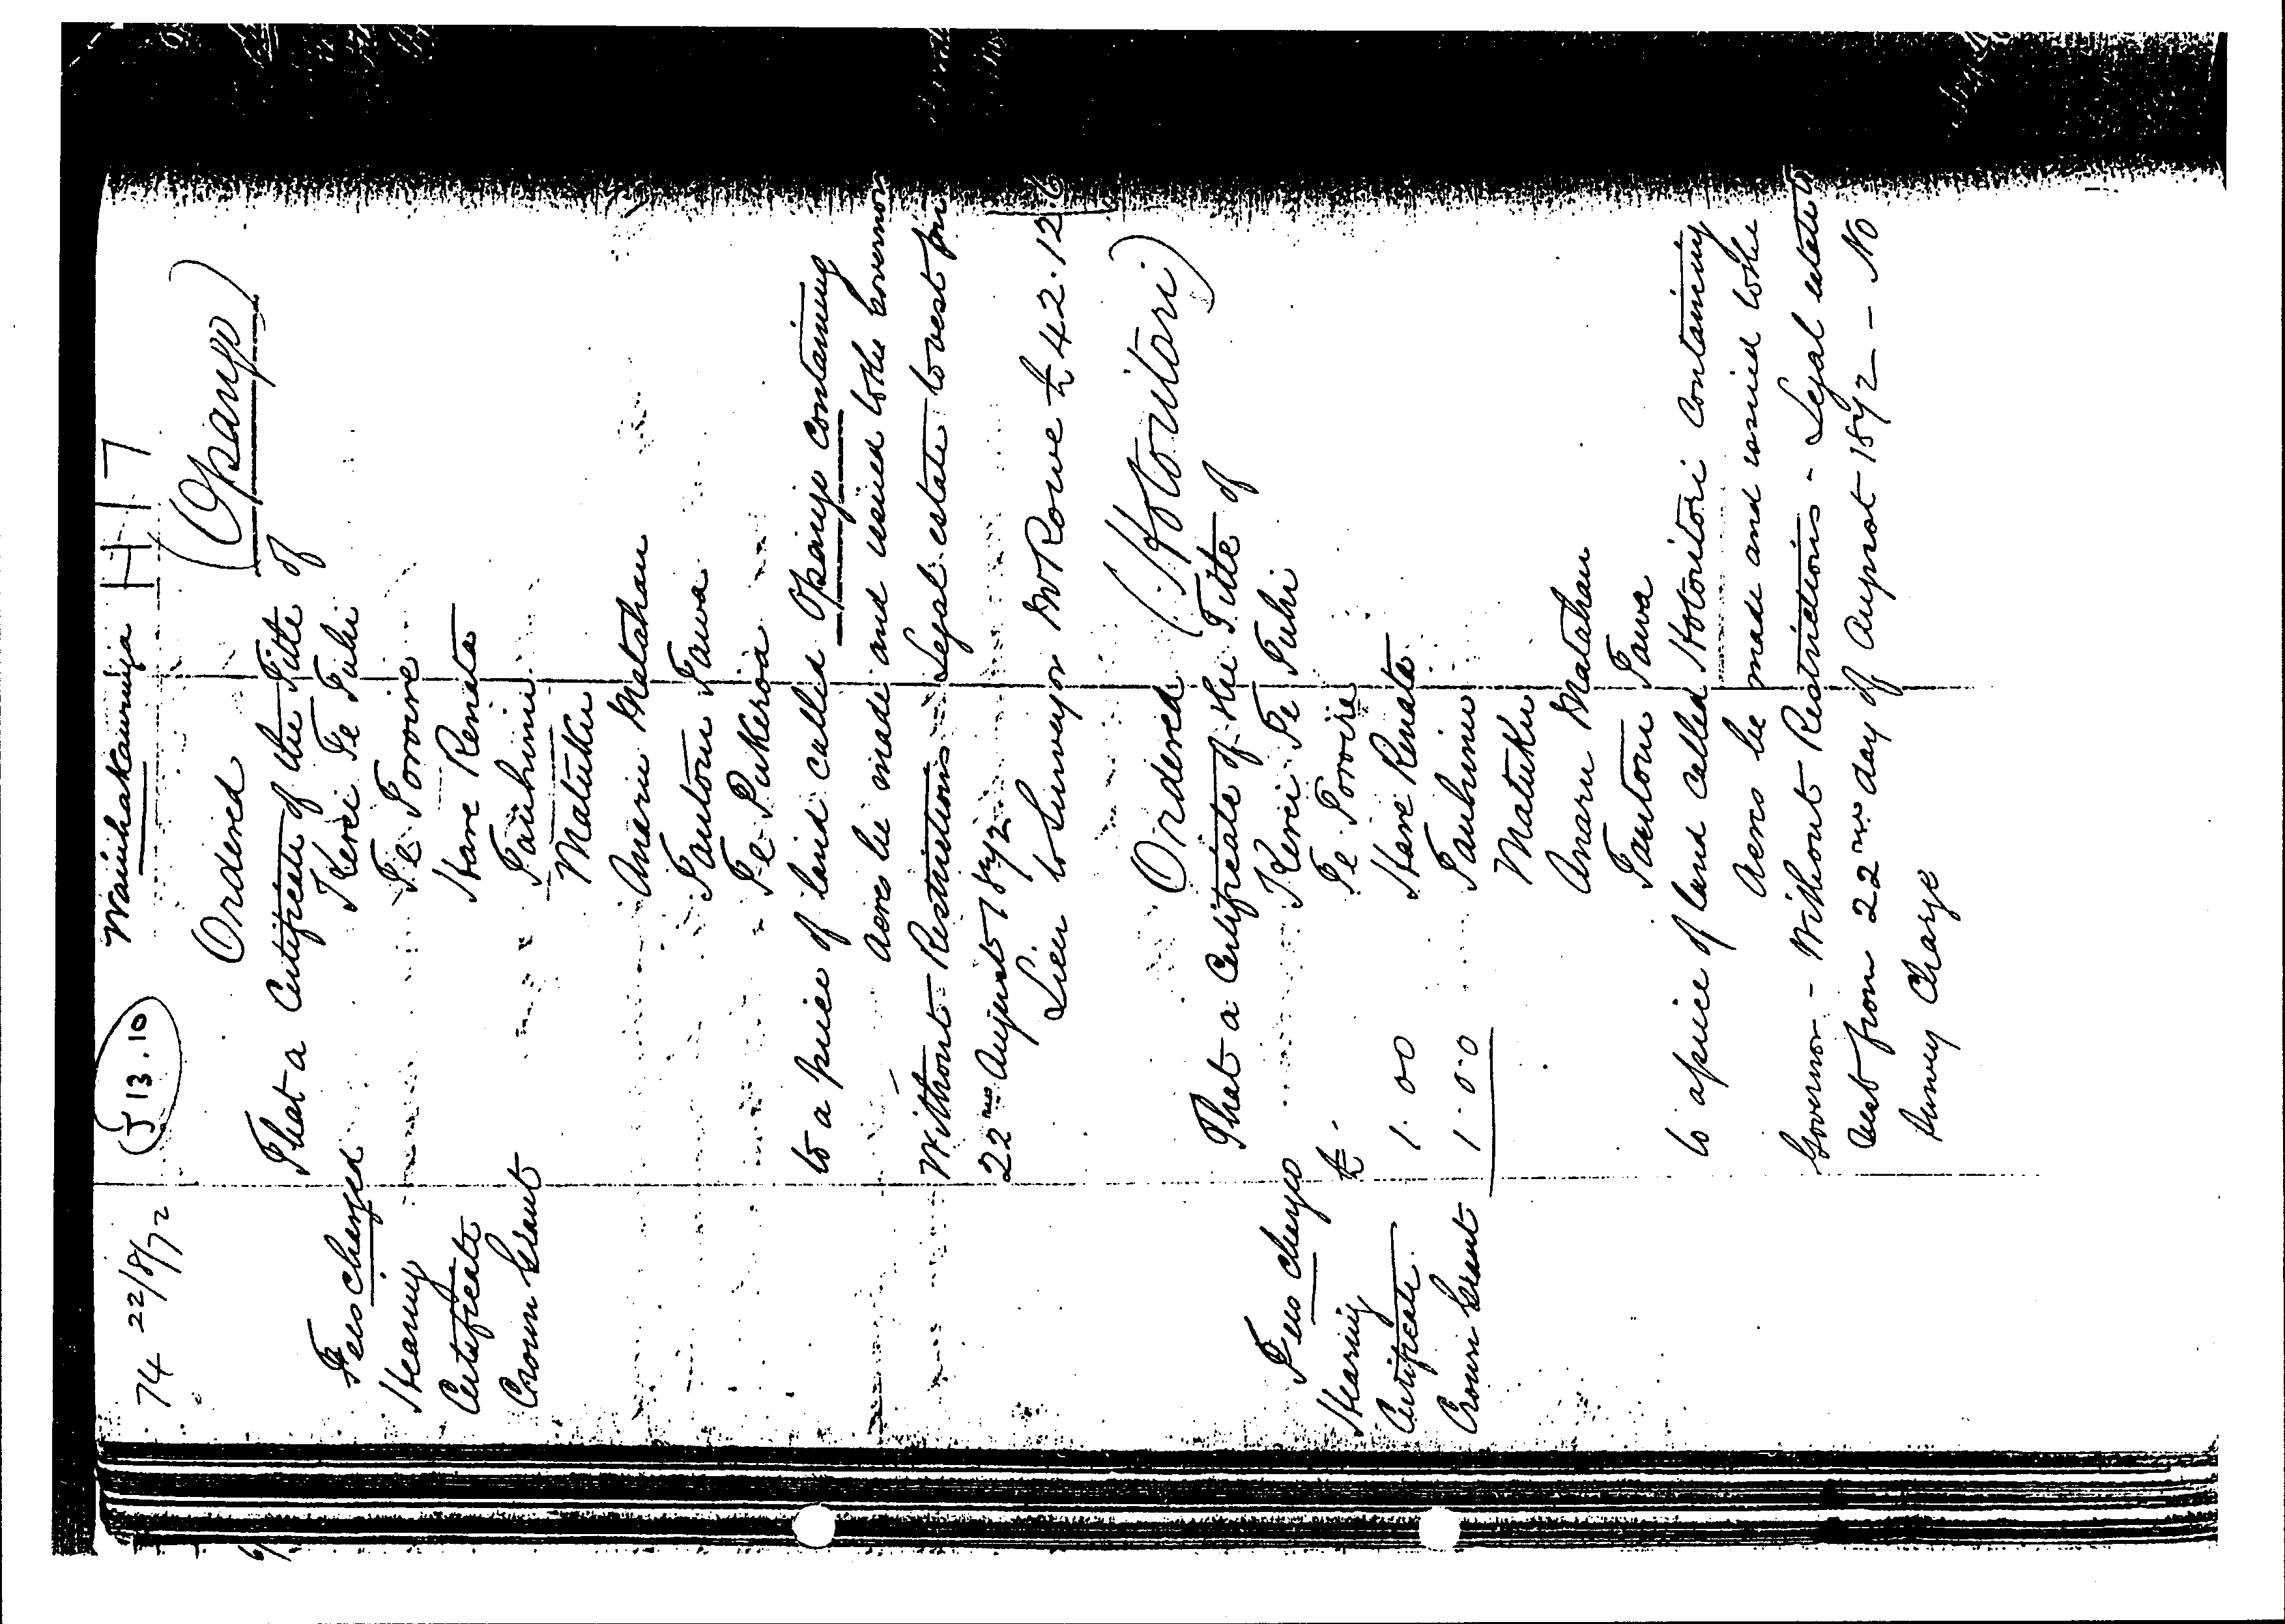 74 22/8/72 (J 13.10) Waiuhakaurunga H H 7
Ordered (Opango)
That a Certificate of the Title of
Fees charged Kerei Te Puhi
Hearing Te Poroire
Certificate Hare Renata
Crown Grant Tauhinu
Matuku
Anaru Matahau
Tautoru Tawa
Te Pukeroa
to a piece of land called Opango containing
acres be made and issued to the Governor
Without Restrictions Legal estate to vest from
22nd August 1872
Lien to Surveyor Mr Rowe £42.12.6
Ordered (Hotoritori)
That a Certificate of the Title of
Fees charged Kerei Te Puhi
Hearing £ Te Poroire
Certificate 1.00 Hare Renata
Crown Grant 1.00 Tauhinu
Matuku
Anaru Matahau
Tautoru Tawa
to a piece of land called Hotoritori containing
Acres be made and issued to the
Governor - Without Restrictions - Legal estate to
vest from 22nd day of August 1872 - No
Survey Charge